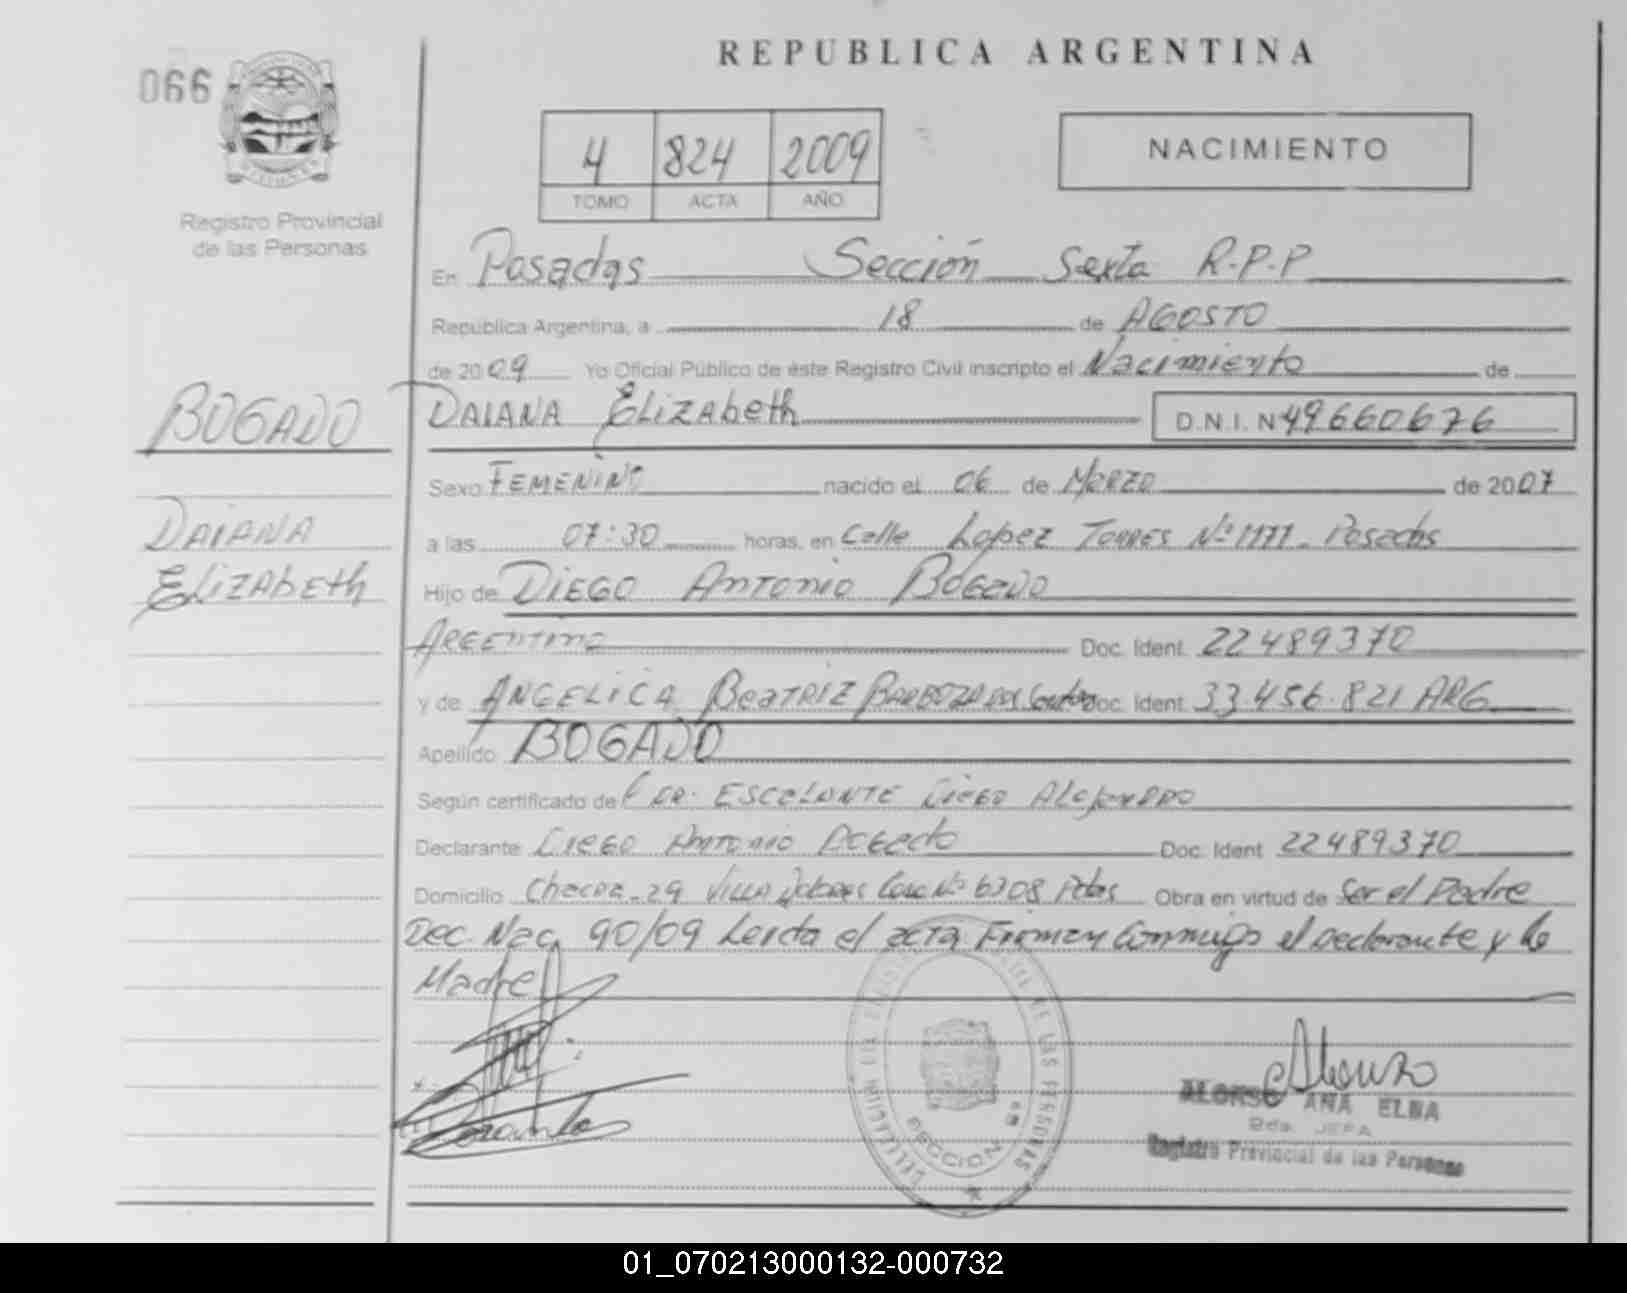 REPUBLICA ARGENTINA
066
4 824 2009
TOMO ACTA AÑO
NACIMIENTO
Registro Provincial
de las Personas
En Posadas Sección Sexta R.P.P
República Argentina, a 18 de AGOSTO
de 2009 Yo Oficial Público de éste Registro Civil inscripto el Nacimiento de
BOGADO
DAIANA ELIZAbeth D.N.I. N 49660676
Sexo FEMENINO nacido el 06 de MARZO de 2007
DAIANA
a las 07:30 horas, en Calle Lopez TORRES Nº 1171 - Posadas
ELIZAbETH
Hijo de DIEGO ANTONIO BOGADO
ARGENTINO Doc. Ident. 22489370
y de ANGELICA BEATRIZ BARBOZA Doc. Ident. 33.456.821 ARG
Apellido BOGADO
Según certificado de DR. ESCALANTE DIEGO ALEJANDRO
Declarante DIEGO ANTONIO BOGADO Doc. Ident. 22489370
Domicilio Chacra-29 Villa Dolores Casa Nº 6308 Pdas Obra en virtud de Ser el Padre
Dec. Nac. 90/09 Leida el acta Firman Conmigo el Declarante y la
Madre
DELEGACION
DE LAS PERSONAS
SECCION 6ª
ALONSO ANA ELBA
JEFA
Registro Provincial de las Personas
01_070213000132-000732